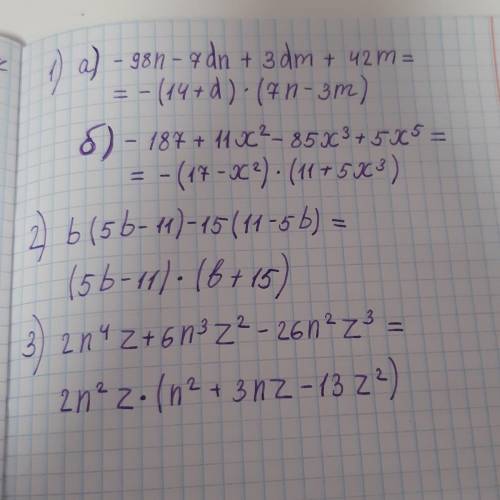 1) а) - 98n - 7dn + 3dm + 42m =
= - (14 + d) · (7n - 3m)
б) - 187 + 11x² - 85x³ + 5x⁵ =
= - (17 - x²) · (11 + 5x³)
2) b (5b - 11) - 15 (11 - 5b) =
(5b - 11) · (b + 15)
3) 2n⁴z + 6n³z² - 26n²z³ =
2n²z · (n² + 3nz - 13z²)